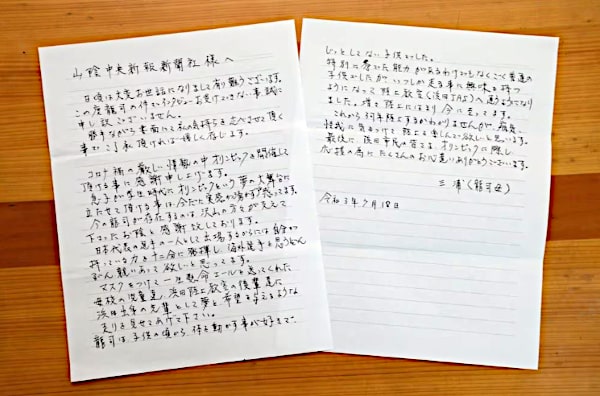 山陰中央新報新聞社様へ
日頃は大変お世話になりまして有難うございます。
この度龍司の件でインタビューお受けできない事、誠に
申し訳ございません。
勝手ながら書面にて私の気持ちを
事でご了承頂ければ嬉しく存じます。
コロナ禍の厳しい情勢の中オリンピックを開催して
頂ける事に感謝申し上げます。
息子が学生時代にオリンピックという夢の大舞台に
立たせて頂ける事は今だに実感が湧かず
今の龍司が存在するのは沢山の方々が支えて
下さったお陰と感謝致しております。
日本代表の選手の一人として出場するからには自分の
持っている力を十二分に発揮し、海外選手とも
競い合って欲しいと思ってます。
マスクをつけて一生懸命エールを送ってくれた
母校の後輩達、浜田陸上教室の後輩達に
浜田出身の先輩として夢と希望を与えるような
走りを見せてあげて下さい。
龍司は子供の頃から、体を動かす事が好きで
じっとしてない子供でした。
特別に秀でた能力があるわけでもなくごく普通の
子供でしたが、いつしか走る事に興味を持つ
ようになって陸上教室(浜田JAS)へ通うようになり
ました。増々陸上にはまり今に至ってます。
これから何年陸上するかわかりませんが、
怪我に気をつけて陸上を楽しんで欲しいと思います。
最後に、浜田市民の皆さま、オリンピックに際し
応援の為にたくさんのお心遣いありがとうございます。
三浦(龍司母)
令和3年7月18日